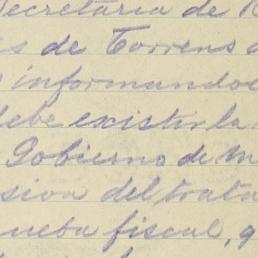 Secretaria de
de Torrens
informando
debe existir la
Gobierno de M
sion del trata
ueba fiscal, q